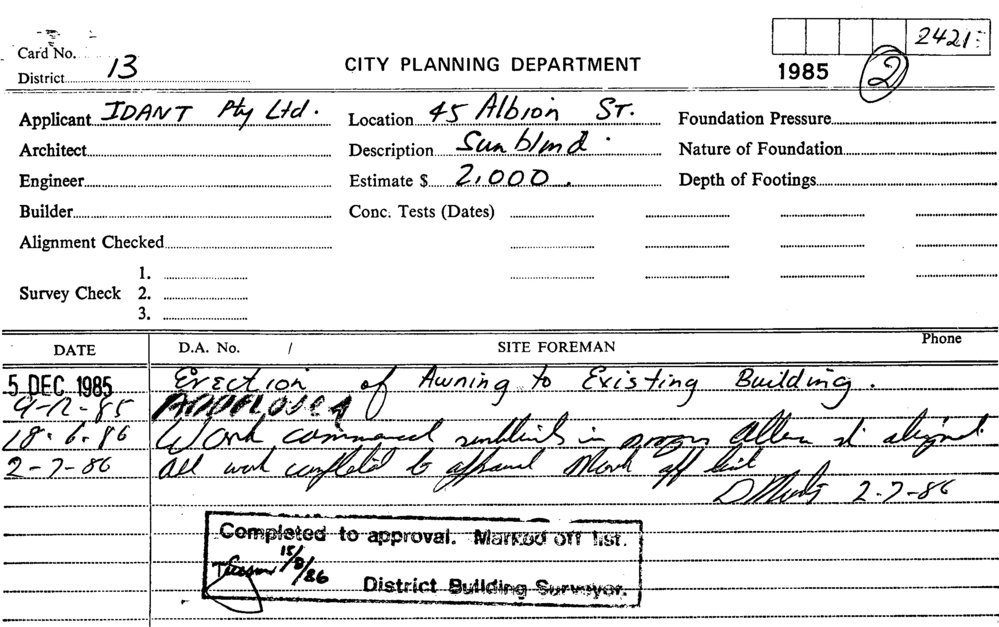 2421
Card No.
District 13
CITY PLANNING DEPARTMENT
1985
2
Applicant IDANT Pty Ltd.
Location 45 Albion ST.
Foundation Pressure
Architect
Description Sunblind.
Nature of Foundation
Engineer
Estimate $ 2,000.
Depth of Footings
Builder
Conc. Tests (Dates)
Alignment Checked
1.
Survey Check 2.
3.
DATE D.A. No. / SITE FOREMAN Phone
5 DEC 1985 Erection of Awning to Existing Building.
9-12-85 Approved
18-6-86 Work commenced sunblinds in
2-7-86 All work completed to approval Mark off list
2-7-86
Completed to approval. Marked off list.
15/8/86
District Building Surveyor.